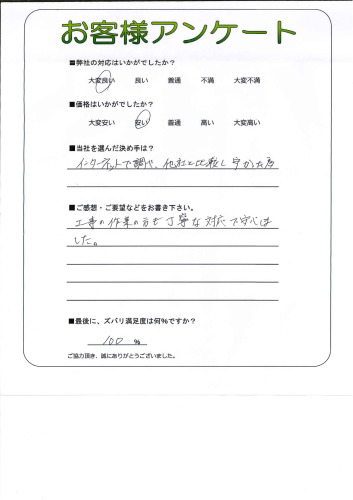 お客様アンケート
■弊社の対応はいかがでしたか？
大変良い 良い 普通 不満 大変不満
■価格はいかがでしたか？
大変安い 安い 普通 高い 大変高い
■当社を選んだ決め手は？
インターネットで調べ、他社と比較し安かった
■ご感想・ご要望などをお書き下さい。
工事の作業の方も丁寧な対応で安心
した。
■最後に、ズバリ満足度は何%ですか？
100 %
ご協力頂き、誠にありがとうございました。